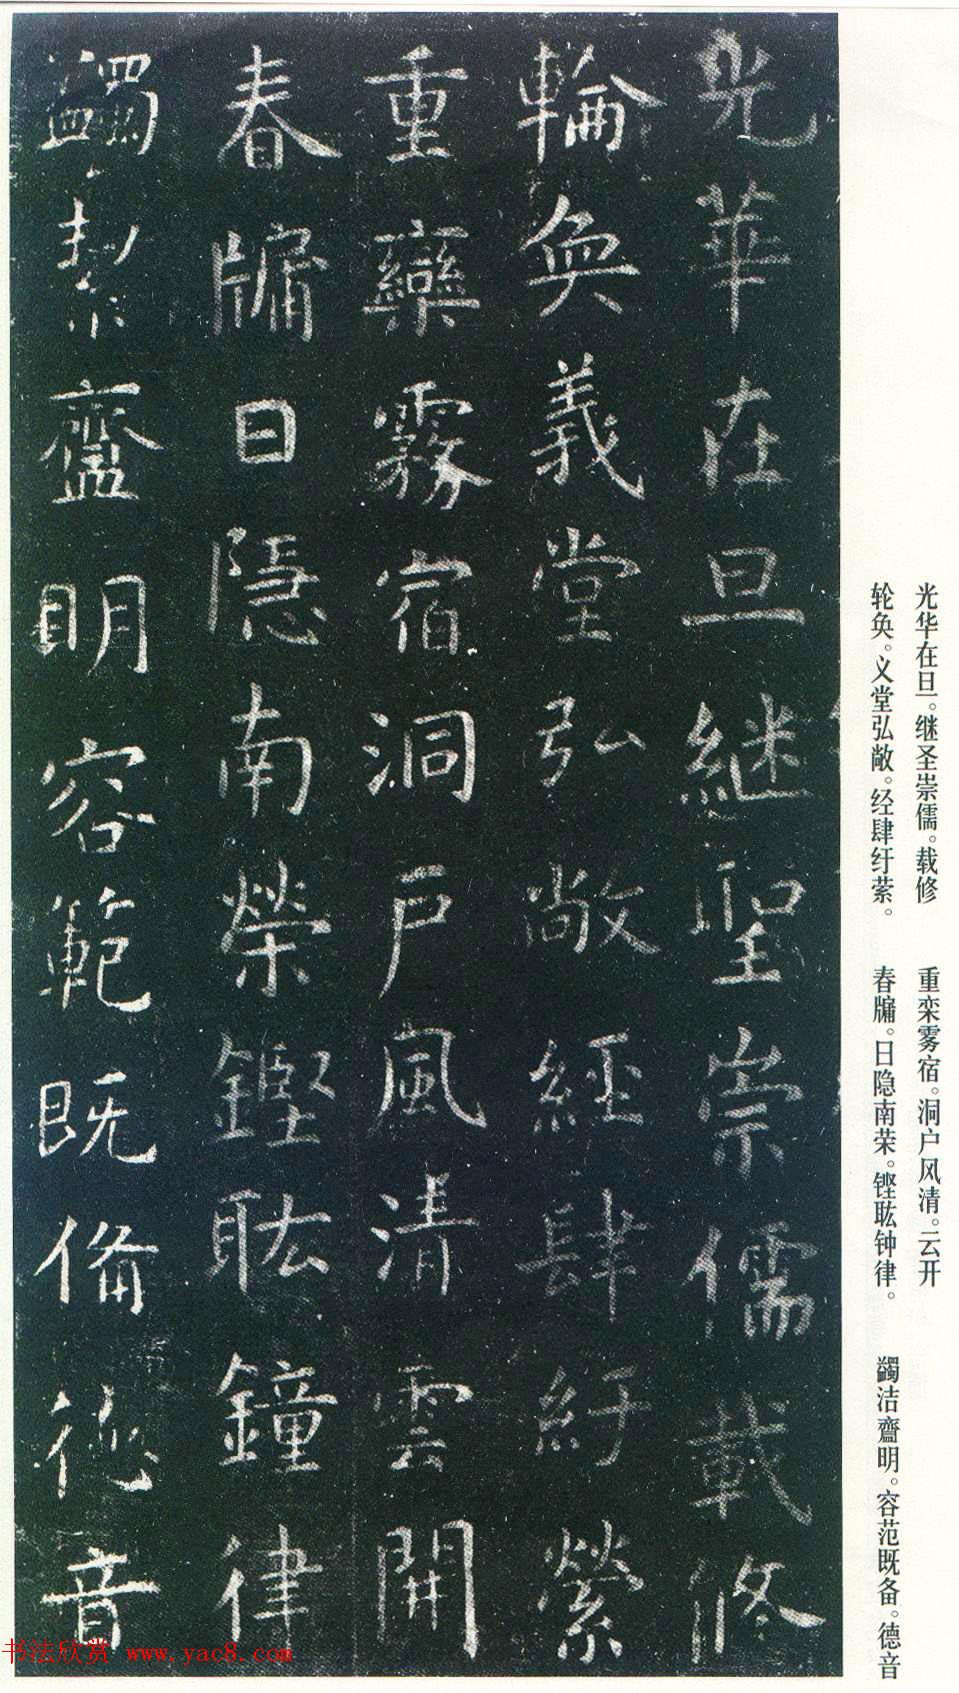 光華在旦継聖崇儒載修
輪奐義堂弘敞經肆紆縈
重欒霧宿洞戶風清雲開
春牖日隱南榮鏗耾鐘律
蠲絜齍明容範既備德音
光华在旦。继圣崇儒。载修
轮奂。义堂弘敞。经肆纡萦。
重栾雾宿。洞户风清。云开
春牖。日隐南荣。铿耾钟律。
蠲洁齍明。容范既备。德音
书法欣赏 www.yac8.com